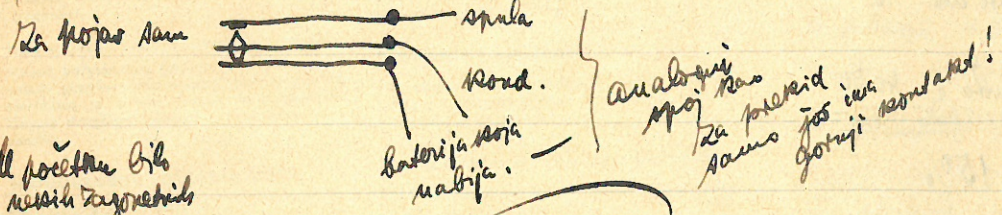 Za pojav sam
spula
kond.
baterija koja
nabija.
analogni
spoj kao
za prekid
samo još ima
gornji kontakt!
U početku bilo
nekih zagonetnih